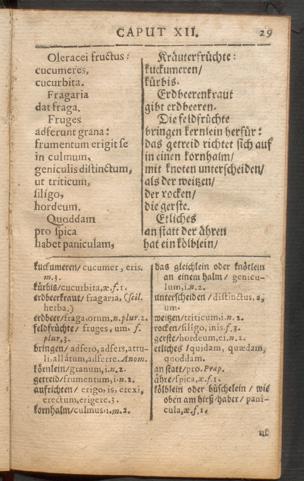 CAPUT XII. 29
Oleracei fructus:
cucumeres,
cucurbita.
Fragaria
dat fraga.
Fruges
adferunt grana:
frumentum erigit se
in culmum,
geniculis distinctum,
ut triticum,
siligo,
hordeum.
Quoddam
pro spica
habet paniculam,
Kräuterfrüchte:
kuckumeren/
kürbis.
Erdbeerenkraut
gibt erdbeeren.
Die feldfrüchte
bringen kernlein herfür:
das getreid richtet sich auf
in einen kornhalm/
mit knoten unterscheiden/
als der weitzen/
der rocken/
die gerste.
Etliches
an statt der ähren
hat ein kölblein/
kuckumeren/ cucumer, eris,
m.3.
kürbis/cucurbita,æ.f.1.
erdbeerkraut/ fragaria, (scil.
herba.)
erdbeer/fraga,orum,n.plur.2.
feldfrüchte/ fruges, um. f.
plur.3.
bringen/adfero,adfers,attu-
li,allátum,adferre.Anom.
körnlein/granum,i.n.2.
getreid/frumentum,i.n.2.
aufrichten/ erigo, is, erexi,
erectum,erigere.3.
kornhalm/culmus,i.m.2.
das gleichlein oder knötlein
an einem halm/ genicu-
lum,i.n.2.
unterscheiden /distinctus,a,
um.
weitzen/triticum,i.n.2.
rocken/siligo,inis.f.3.
gerste/hordeum,ei.n.2.
etliches /quidam, quædam,
quoddam.
an statt/pro.Præp.
ähre/spica,æ.f.1.
kölblein oder büschelein / wie
oben am hirß-haber/ pani-
cula,æ.f.1.